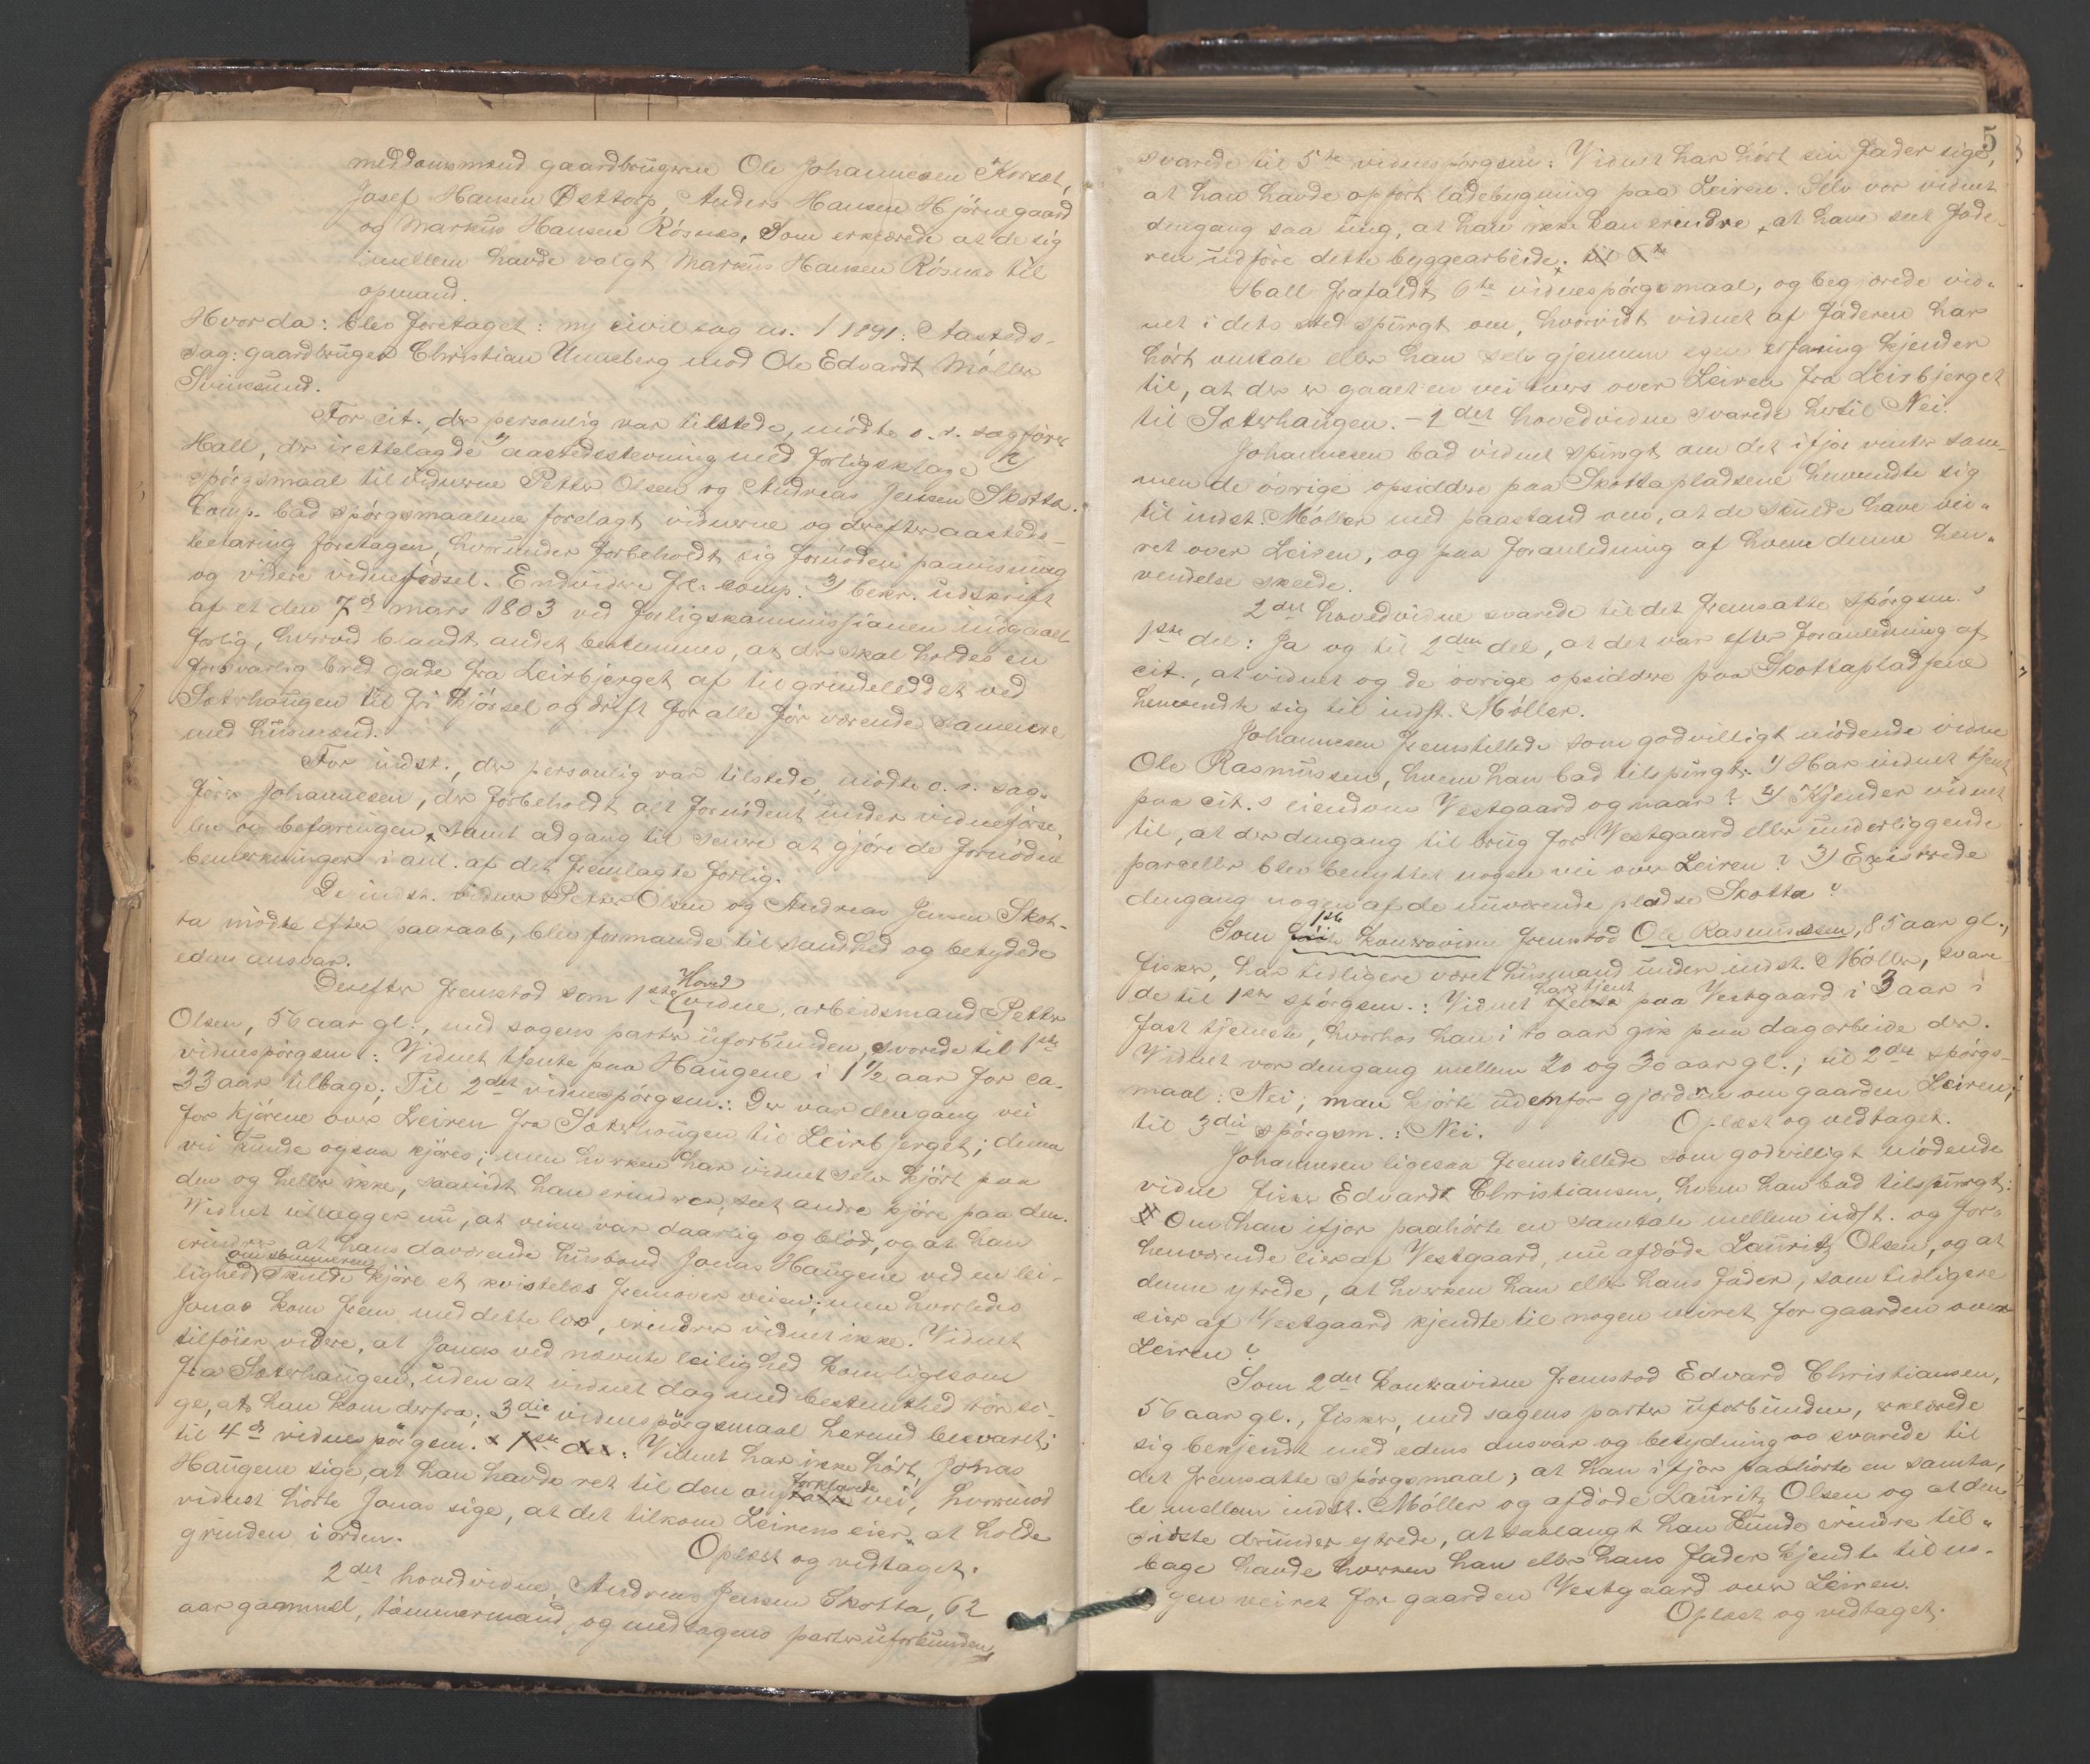 meddomsmænd gaardbrugerne Ole Johannesen Korsæt,
Josef Hansen Østtorp, Anders Hansen Hjørnegaard
og Markus Hansen Rösnæs, som erklærede at de sig
imellem havde valgt Markus Hansen Rösnæs til
opmand.
Hvorda: blev foretaget: ny civil sag no. 1 1891: Aasteds-
sag: gaardbruger Christian Unneberg mod Ole Edvardt Möller
Sviksund.
For cit., der personlig var tilstede, mödte o. r. sagförer
Hall, der irettelagde 1) aastedsstevning med forligsklage 2)
spörgsmaal til vidnerne Petter Olsen og Andreas Jensen Skotta.
Comp. bad spörgsmaalene forelagt vidnerne og derefter aasteds-
befaring foretagen, hvorunder forbeholdt sig fornöden paavisning
og videre vidneförsel. Endvidere frl. comp. 3) bekr. udskrift
af et den 7de mars 1803 vid forligskommissionen indgaaet
forlig, hvorved blandt andet bestemmes, at der skal holdes en
forsvarlig bred gade fra Leirbjerget af til grindeleddet ved
Sæterhaugen til fri kjörsel og drift for alle för værende sameiere
med husmænd.
For indst., der personlig var tilstede, mödte o. r. sag-
förer Johannesen, der forbeholdt alt fornödent under vidneförse-
len og befaringen, samt adgang til senere at gjöre de fornödne
bemerkninger i anl. af det fremlagte forlig.
De indst. vidner Petter Olsen og Andreas Jensen Skot-
ta mödte efter paaraab, blev formanede til sandhed og betydede
edens ansvar.
Derefter fremstod som 1ste Hoved
vidne, arbeidsmand Petter
Olsen, 56 aar gl., med sagens parter uforbunden, svarede til 1ste
vidnespörgsm.: Vidnet tjente paa Haugene i 1½ aar for ca.
33 aar tilbage; Til 2det vidnespörgsm.: Der var dengang vei
for kjörene over Leiren fra Sæterhougen til Leirbjerget; denne
vei kunde ogsaa kjöres; men hverken har vidnet selv kjört paa
den og heller ikke, saavidt han erindrer, seet andre kjöre paa den.
Vidnet tillægger nu, at veien var daarlig og blöd, og at han
erindrer at hans daværende husbond Jonas Haugene ved en lei-
om sommeren
lighed skulde kjöre et kvistelæs fremover veien; men hvorledes
Jonas kom frem med dette læs, erindrer vidnet ikke. Vidnet
tilföier videre, at Jonas ved nævnte leilighed kom ligesom
fra Sæterhaugen, uden at vidnet dog med bestemthed tör si-
ge, at han kom derfra; 3die vidnespörgsmaal herved besvaret;
til 4de vidnespörgsm. 1ste del: Vidnet har ikke hört, Jonas
Haugene sige, at han havde ret til den forklarede
vei, hvorimod
vidnet hörte Jonas sige, at det tilkom Leirens eier at holde
grinden i orden.
Oplæst og vedtaget.
2det hovedvidne, Andreas Jensen Skotta, 62
aar gammel, tömmermand, og med sagens parter uforbunden,
5
svarede til 5te vidnespörgsm: Vidnet har hört sin fader sige,
at han havde opfört ladebygning paa Leiren. Selv var vidnet
dengang saa ung, at han ikke kan erindre, at have seet fade-
ren udföre dette byggearbeide. til 6te
Hall frafaldt 6te vidnespörgsmaal, og begjærede vid-
net i dets sted spurgt om, hvorvidt vidnet af faderen har
hört omtale eller han selv gjennem egen erfaring kjender
til, at der er gaaet en vei tvers over Leiren fra Leirbjerget
til Sæterhaugen. - 2det hovedvidne svarede hertil Nei.
Johannesen bad vidnet spurgt om det ifjor vinter sam-
men de övrige opsiddere paa Skottapladsene henvendte sig
til indst. Möller med paastand om, at de skulde have vei-
ret over Leiren, og paa foranledning af hvem denne hen-
vendelse skede.
2det hovedvidne svarede til det fremsatte spörgsm.s
1ste del: Ja og til 2den del, at det var efter foranledning af
cit., at vidnet og de övrige opsiddere paa Skottapladsene
henvendte sig til indst. Möller.
Johannesen fremstillede som godvilligt mödende vidne
Ole Rasmussen, hvem han bad tilspurgt: 1) Har vidnet tjent
paa cit.s eiendom Vestgaard og naar? 2) Kjender vidnet
til, at der dengang til brug for Vestgaard eller underliggende
parceller blev benyttet nogen vei over Leiren? 3) Existerede
dengang nogen af de nuværende pladse Skotta?
1ste
Som kontravidne fremstod Ole Rasmussen, 85 aar gl.,
fisker, har tidligere været husmand under indst. Möller, svare-
har tjent
de til 1ste spörgsm.: Vidnet tjente paa Vestgaard i 3 aar i
fast tjeneste, hvorhos han i to aar gik paa dagarbeide der.
Vidnet var dengang mellem 20 og 30 aar gl.; til 2det spörgs-
maal: Nei; man kjörte udenfor gjorden om gaarden Leiren;
til 3die spörgsm.: Nei. Oplæst og vedtaget.
Johannesen ligesaa fremstillede som godvilligt mödende
vidne fisker Edvardt Christiansen, hvem han bad tilspurgt:
Om han ifjor paahörte en samtale mellem indst. og for-
henværende eier af Vestgaard, nu afdöde Lauritz Olsen, og at
denne ytrede, at hverken han eller hans fader, som tidligere
eier af Vestgaard kjendte til nogen veiret for gaarden over
Leiren?
Som 2det kontravidne fremstod Edvard Christiansen,
56 aar gl., fisker, med sagens parter uforbunden, erklærede
sig bekjendt med edens ansvar og betydning og svarede til
det fremsatte spörgsmaal; at han i fjor paahörte en samta-
le mellem indst. Möller og afdöde Lauritz Olsen og at den
sidste derunder ytrede, at saalangt han kunde erindre til-
bage havde hverken han eller hans fader kjendt til no-
gen veiret for gaarden Vestgaard over Leiren.
Oplæst og vedtaget.